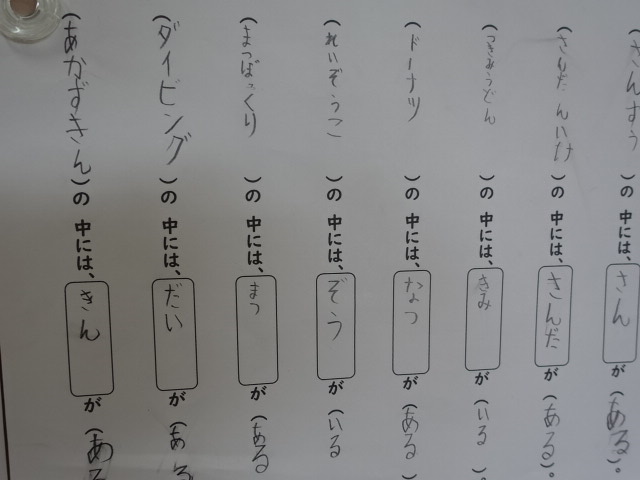 (さんすう)の中には、さんが(ある)。
(さんだんいけ)の中には、さんだが(ある)。
(つきみうどん)の中には、きみが(いる)。
(ドーナツ)の中には、なつが(ある)
(れいぞうこ)の中には、ぞうが(いる
(まつぼっくり)の中には、まつが(ある
(ダイビング)の中には、だいが(ある
(あかずきん)の中には、きんが(ある